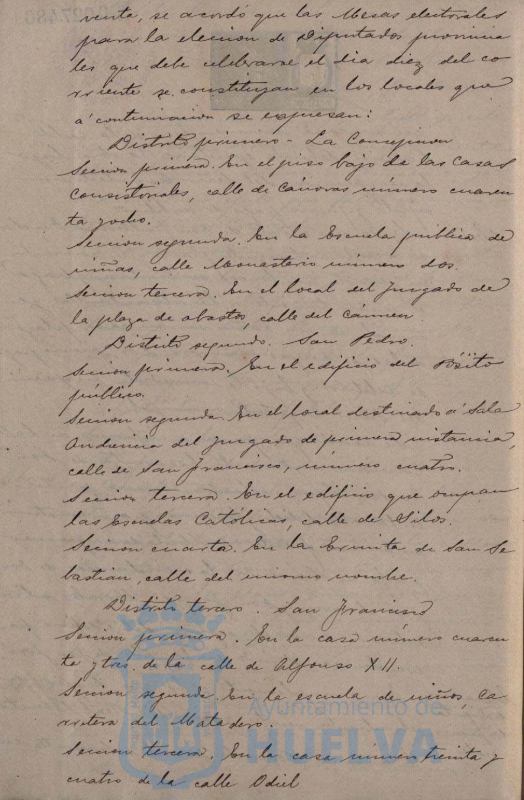 venta, se acordó que las Mesas electorales
para la eleccion de Diputados provincia
les que debe celebrarse el dia diez del co
rriente se constituyan en los locales que
á continuacion se expresan:
Distrito primero - La Concepcion
Seccion primera. En el piso bajo de las casas
consistoriales, calle de Cánovas número cuaren
ta y ocho.
Seccion segunda. En la Escuela publica de
niñas, calle Monasterio número dos.
Seccion tercera. En el local del Juzgado de
la plaza de abastos, calle del Cármen
Distrito segundo. San Pedro.
Seccion primera. En el edificio del Pósito
público.
Seccion segunda. En el local destinado á Sala
Audiencia del Juzgado de primera instancia,
calle de San Francisco, número cuatro.
Seccion tercera. En el edificio que ocupan
las Escuelas Católicas, calle de Silos.
Seccion cuarta. En la Ermita de San Se
bastian, calle del mismo nombre.
Distrito tercero. San Francisco
Seccion primera. En la casa número cuaren
ta y tres de la calle de Alfonso XII.
Seccion segunda. En la escuela de niños, Ca
rretera del Matadero.
Seccion tercera. En la casa número treinta y
cuatro de la calle Odiel
Ayuntamiento de
HUELVA